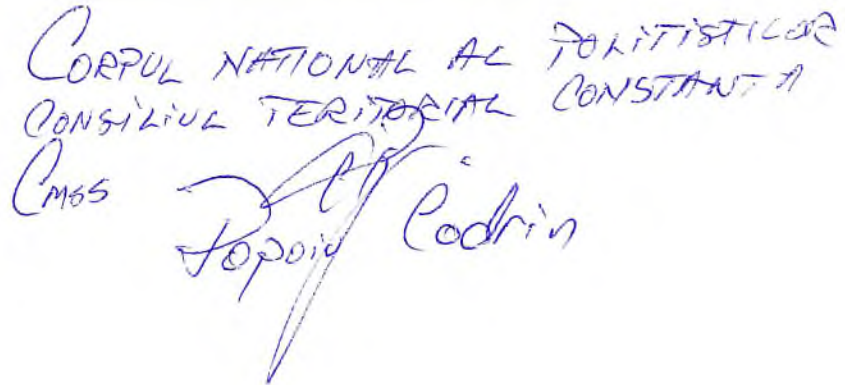 CORPUL NATIONAL AL POLITISTILOR
CONSILIUL TERITORIAL CONSTANTA
Cmss
Popoiu Codrin